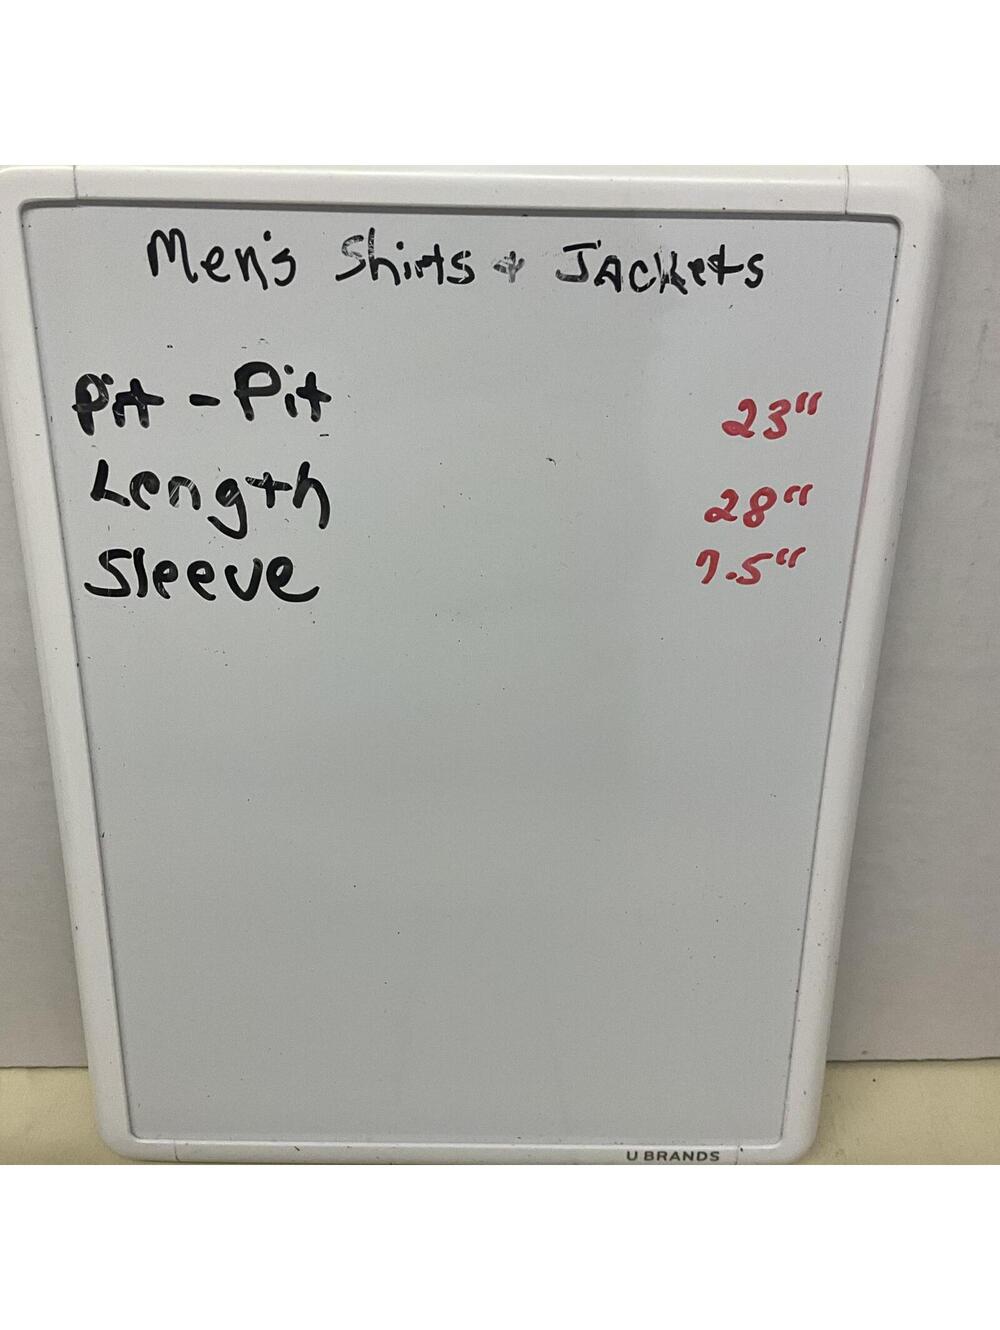 Men's Shirts + Jackets
Pit - Pit 23"
Length 28"
Sleeve 7.5"
U BRANDS